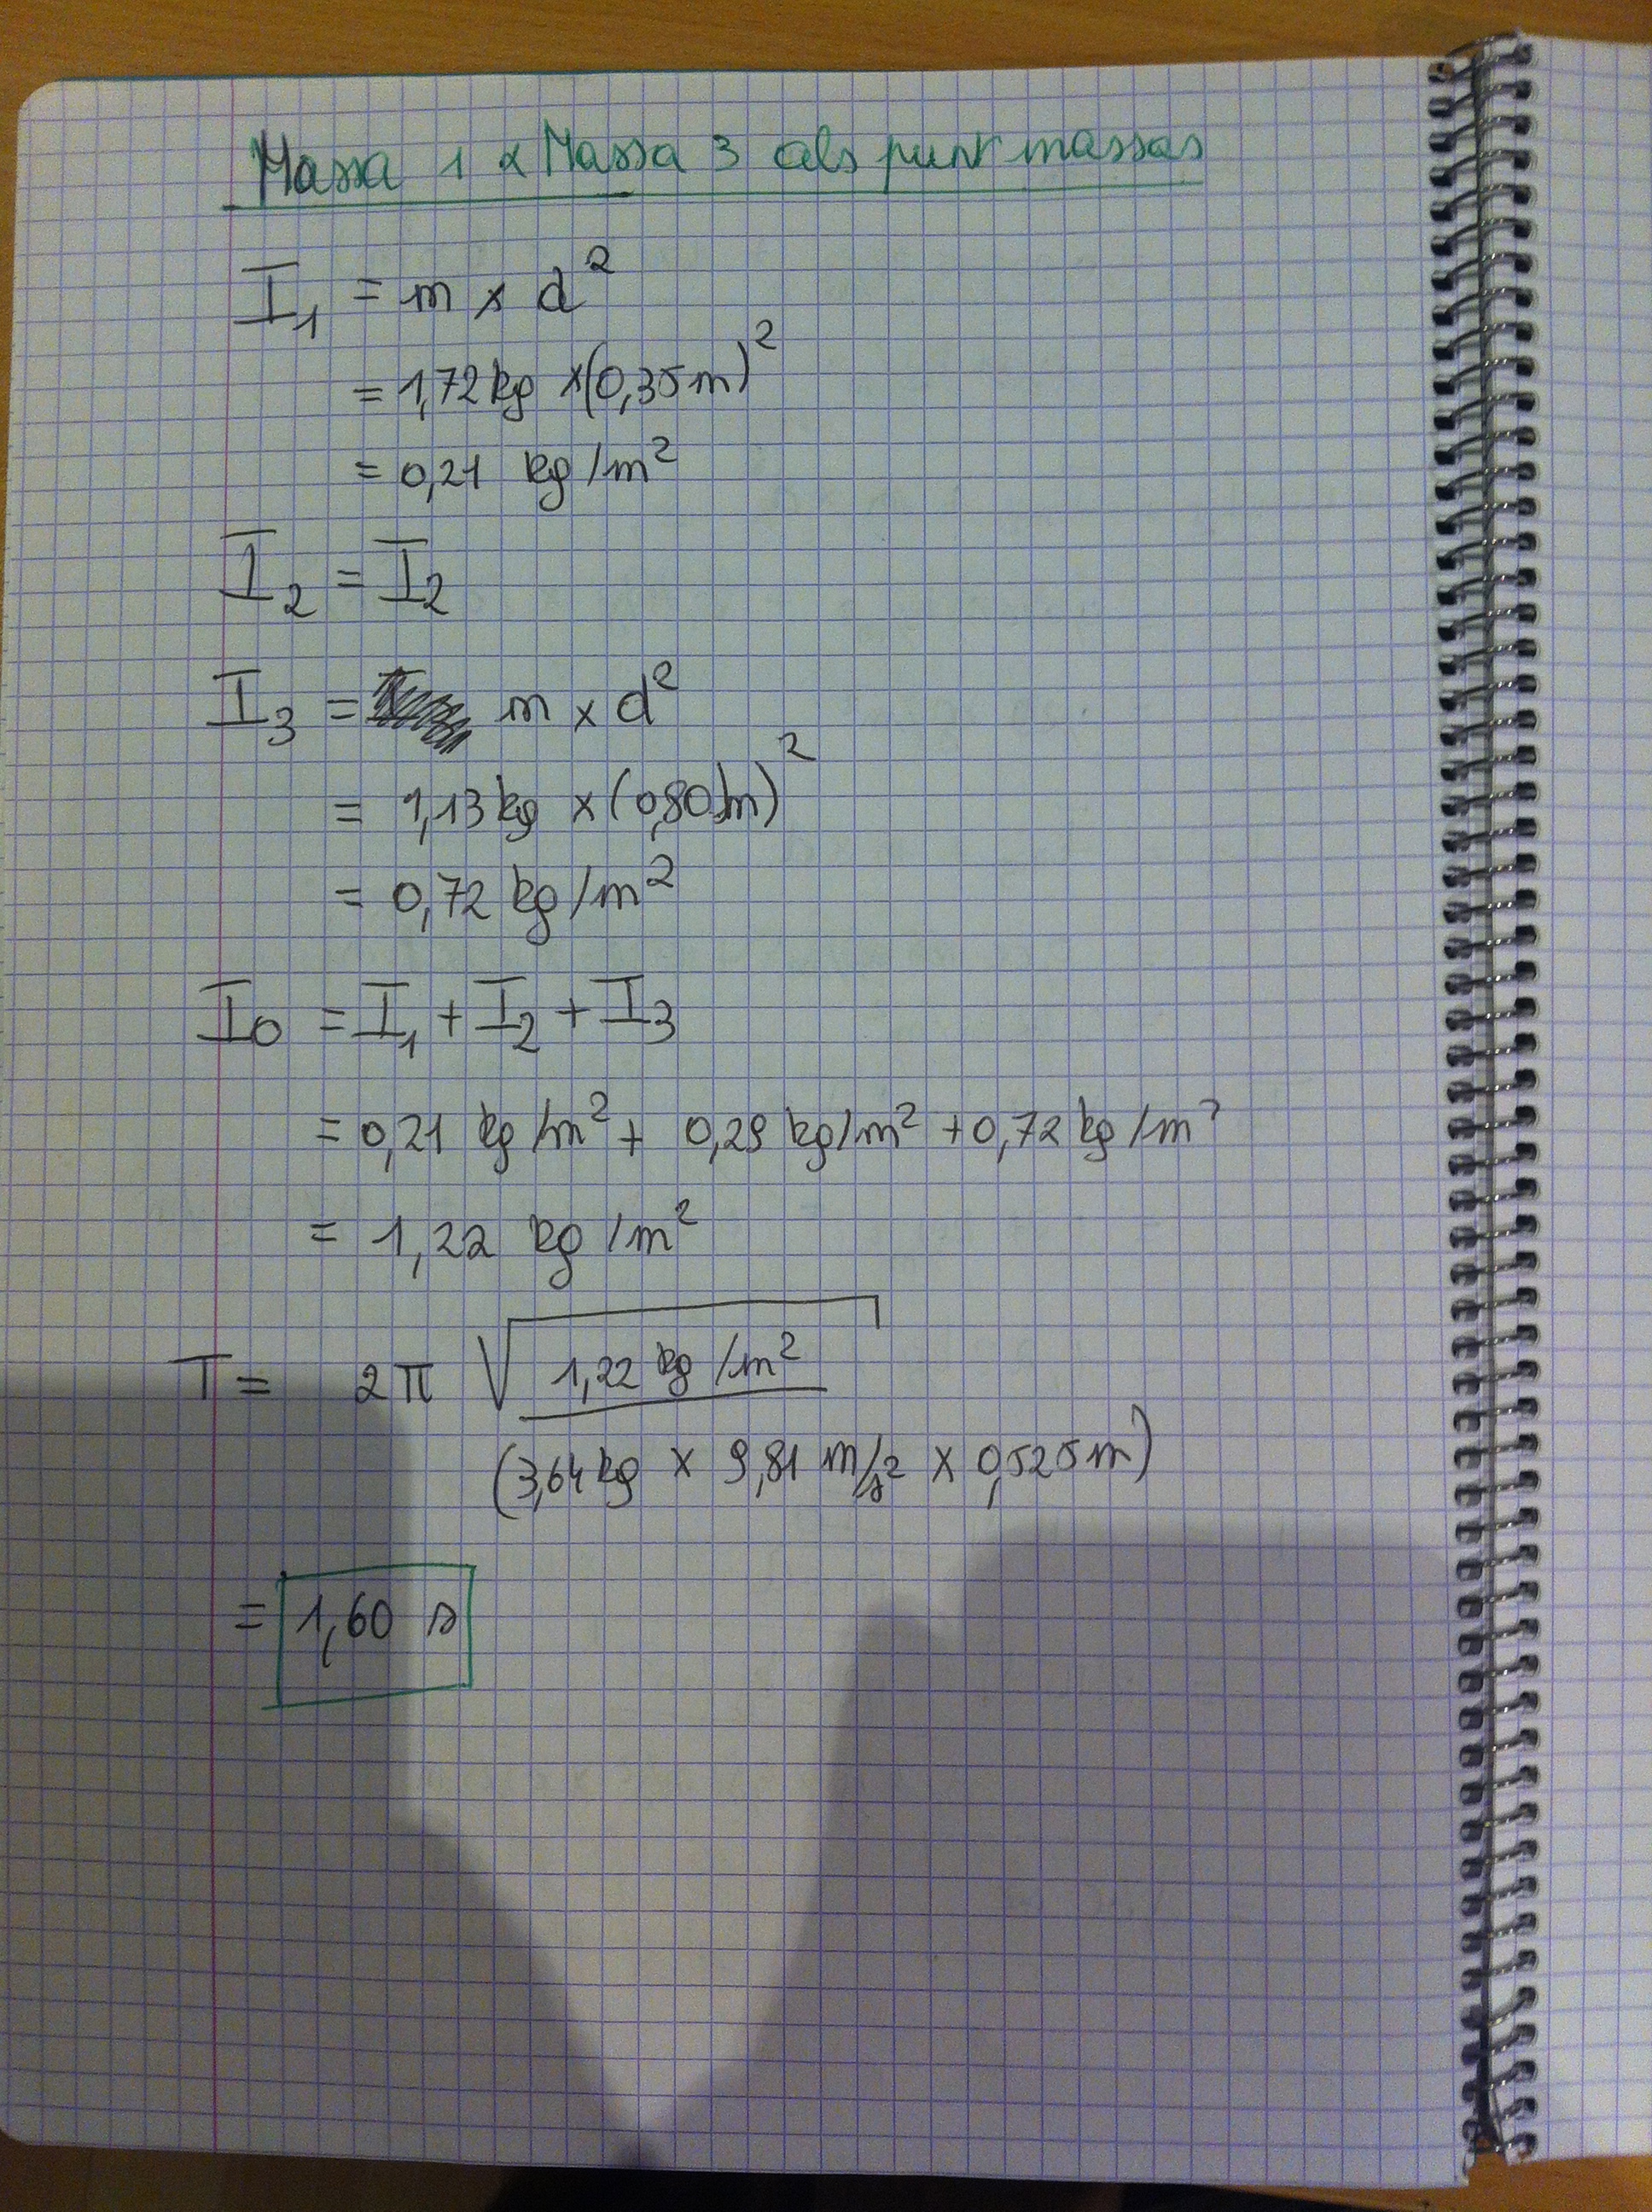 Massa 1 & Massa 3 als puntmassas
I₁ = m × d²
= 1,72 kg × (0,35 m)²
= 0,21 kg/m²
I₂ = I₂
I₃ = m × d²
= 1,13 kg × (0,80 m)²
= 0,72 kg/m²
I₀ = I₁ + I₂ + I₃
= 0,21 kg/m² + 0,29 kg/m² + 0,72 kg/m²
= 1,22 kg/m²
T = 2π √ 1,22 kg/m²
(3,64 kg × 9,81 m/s² × 0,525 m)
= 1,60 s